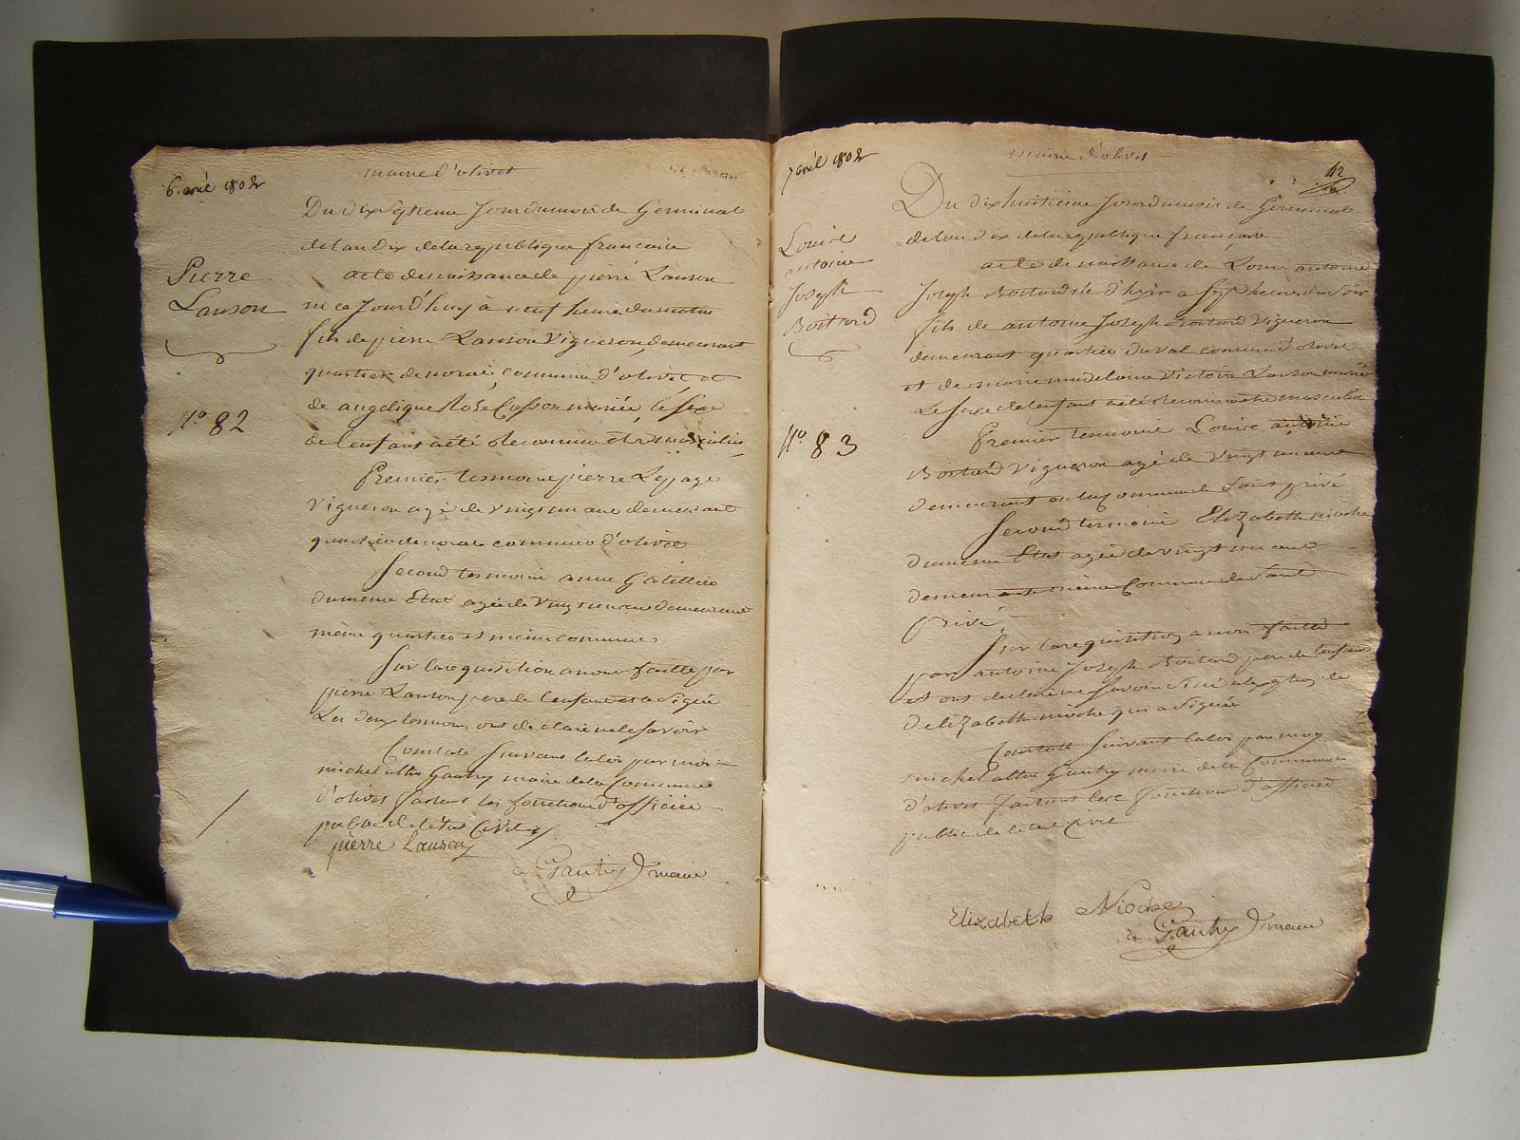 6 avril 1802
mairie d'olivet
Du dix septieme Jour du mois de Germinal
de l'an Dix de la republique francaise
Pierre
Lanson
acte de naissance de pierre Lanson
né ce Jourd'huy à neuf heure du matin
fils de pierre Lanson Vigneron demeurant
quartier de commune d'olivet et
N.o 82
de angelique Rose Cosson mariée, le sexe
de l'enfant a été reconnu etre masculin
Premier temoin pierre Lepage
Vigneron agé de vingt un ans demeurant
quartier commune d'olivet
Second temoin anne
du meme Etat agée de vingt ans demeurant
même quartier et même commune
Sur la requisition a nous faitte par
pierre Lanson pere de l'enfant et a signé
Les deux temoins ont declaré ne le savoir
Constaté suivant la loi par moi
michel Gautry maire de la Commune
d'olivet faisant les fonctions d'officier
public de l'état Civil
pierre Lanson
Gautry maire
7 avril 1802
mairie d'olivet
42
Du dix huitieme Jour du mois de Germinal
de l'an dix de la republique française
Louise
antoine
Joseph
Boitard
acte de naissance de Louis antoine
Joseph Boitard né d'hyer a sept heures du soir
fils de antoine Joseph Boitard Vigneron
demeurant quartier du val commune d'olivet
et de marie madelaine Victoire Lanson mariée
Le sexe de l'enfant a été reconnu etre masculin
N.o 83
Premier temoin Louise antoine
Boitard Vigneron agé de vingt un ans
demeurant commune de Saint privé
Second temoin Elizabeth nioche
du meme Etat agée de vingt ans
demeurant même Commune de Saint
privé
Sur la requisition a nous faitte
par antoine Joseph Boitard pere de l'enfant
et ont declaré ne savoir signé de
d'elizabeth nioche qui a signé
Constaté suivant la loi par moy
michel Gautry maire de la Commune
d'olivet faisant les fonction d'officier
public de l'état Civil
Elizabeth Nioche
Gautry maire